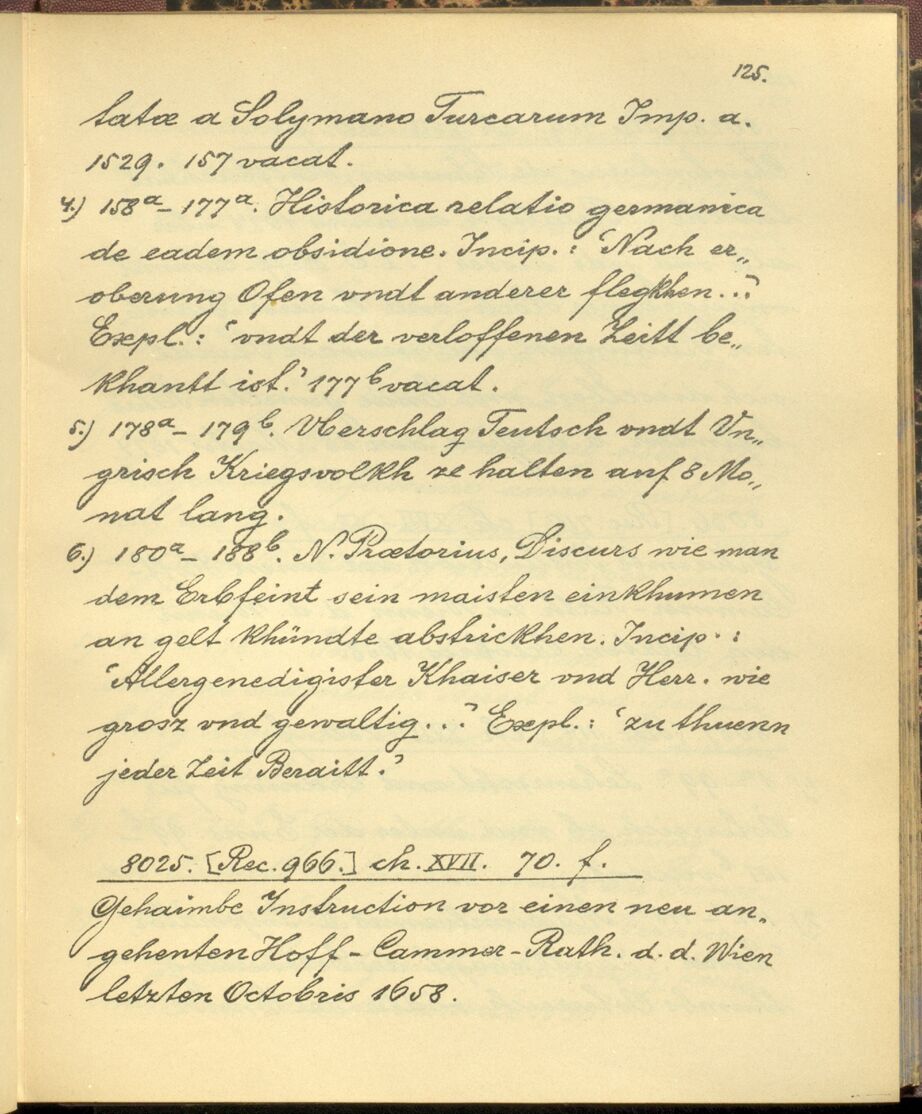 125.
tatæ a Solymano Turcarum Imp. a.
1529. 157 vacat.
4.) 158ᵃ – 177ᵃ. Historica relatio germanica
de eadem obsidione. Incip.: 'Nach er„
oberung Ofen vndt anderer flegkhen...'
Expl.: 'vndt der verloffenen Zeitt be„
khantt ist.' 177ᵇ vacat.
5.) 178ᵃ – 179ᵇ. Vberschlag Teutsch vndt Vn„
grisch Kriegsvolkh ze halten auf 8 Mo„
nat lang.
6.) 180ᵃ – 188ᵇ. N. Prætorius, Discurs wie man
dem Erbfeint sein maisten einkhumen
an gelt khündte abstrickhen. Incip.:
'Allergenedigister Khaiser vnd Herr. wie
grosz vnd gewaltig...' Expl.: 'zu thuenn
jeder Zeit Beraitt.'
8025. [Rec. 966.] ch. XVII. 70. f.
Gehaimbe Instruction vor einen neu an„
gehenten Hoff-Cammer-Rath. d. d. Wien
letzten Octobris 1658.